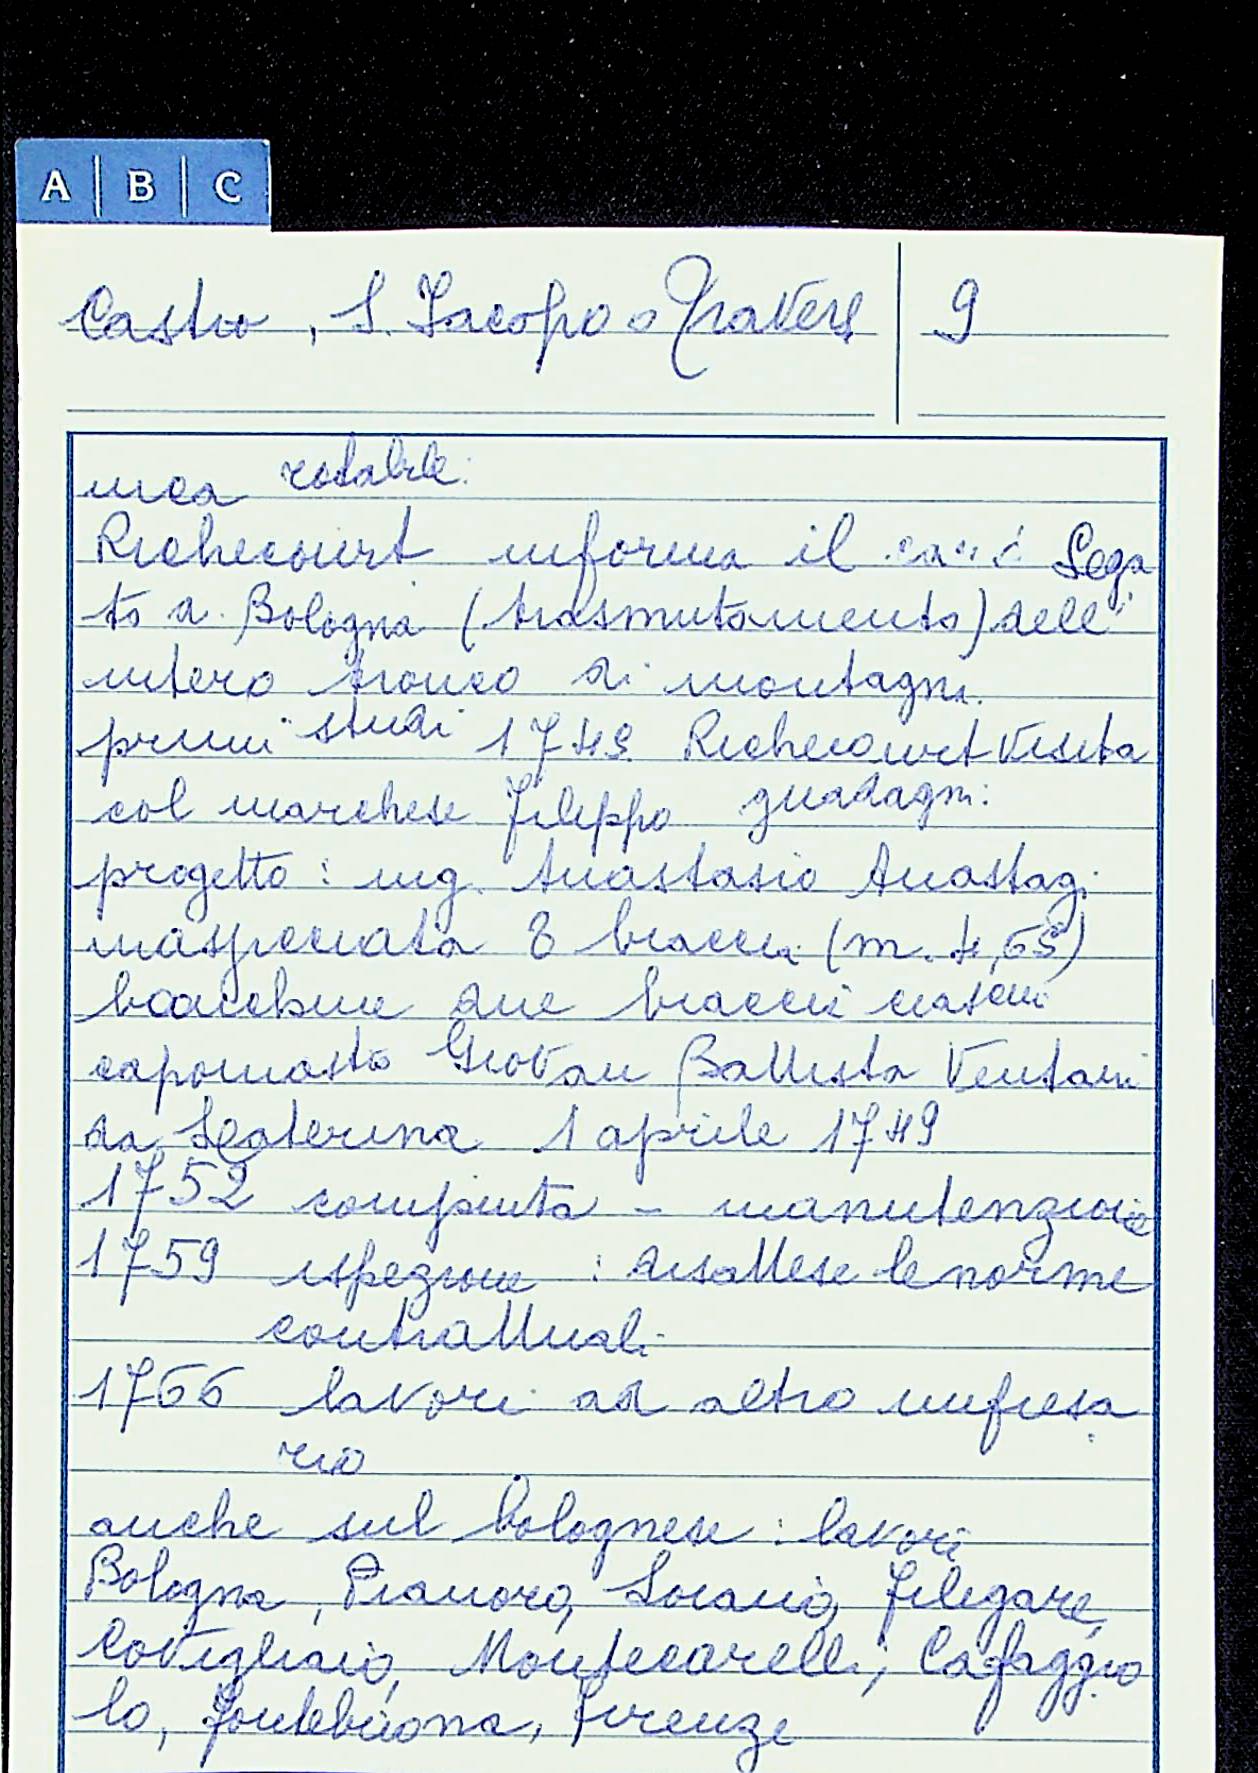 A B C
Castro, S. Jacopo a Travers 9
unica rotabile:
Richecourt informa il Lega
to a Bologna (trasmutamento) dell'
intero tronco di montagna.
primi studi 1749 Richecourt visita
col marchese Filippo Guadagni:
progetto: ing. Anastasio Anastagi
massicciata 8 braccia (m. 4,65)
banchine due braccia ciascun
capomastro Giovan Battista Ventani
da Laterina 1 aprile 1749
1752 compiuta - manutenzione
1759 ispezione: disattese le norme
contrattuali
1766 lavori ad altro impresa
rio
anche sul bolognese: lavori
Bologna, Pianoro, Loiano, Filigare,
Covigliaio, Montecarelli, Cafaggio
lo, Fontebuona, Firenze